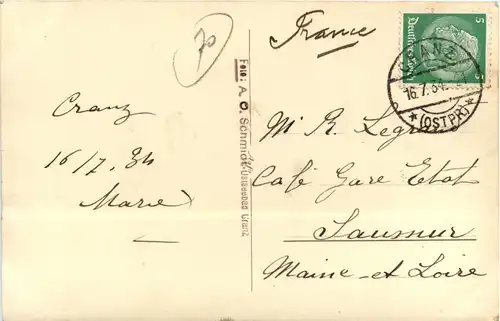 France
70
5
5
CRANZ
16.7.34
(OSTPR)
Cranz
16/7.34
Marie
Foto: A. O. Schmidt, Ostseebad Cranz
M R.
Café Gare Etat
Saumur
Maine-et Loire